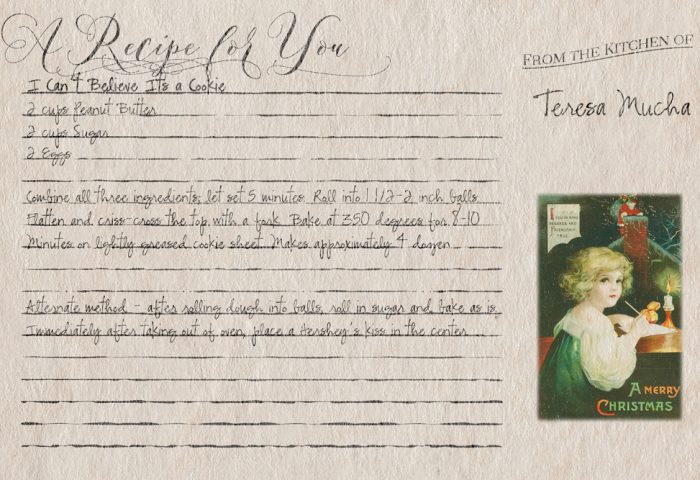 A Recipe for You
FROM THE KITCHEN OF
Teresa Mucha
I Can't Believe Its a Cookie
2 cups Peanut Butter
2 cups Sugar
2 Eggs
Combine all three ingredients, let set 5 minutes. Roll into 1 1/2-2 inch balls.
Flatten and criss-cross the top with a fork. Bake at 350 degrees for 8-10
Minutes on lightly greased cookie sheet. Makes approximately 4 dozen
Alternate method - after rolling dough into balls, roll in sugar and bake as is.
Immediately after taking out of oven, place a Hershey's kiss in the center
A MERRY
CHRISTMAS